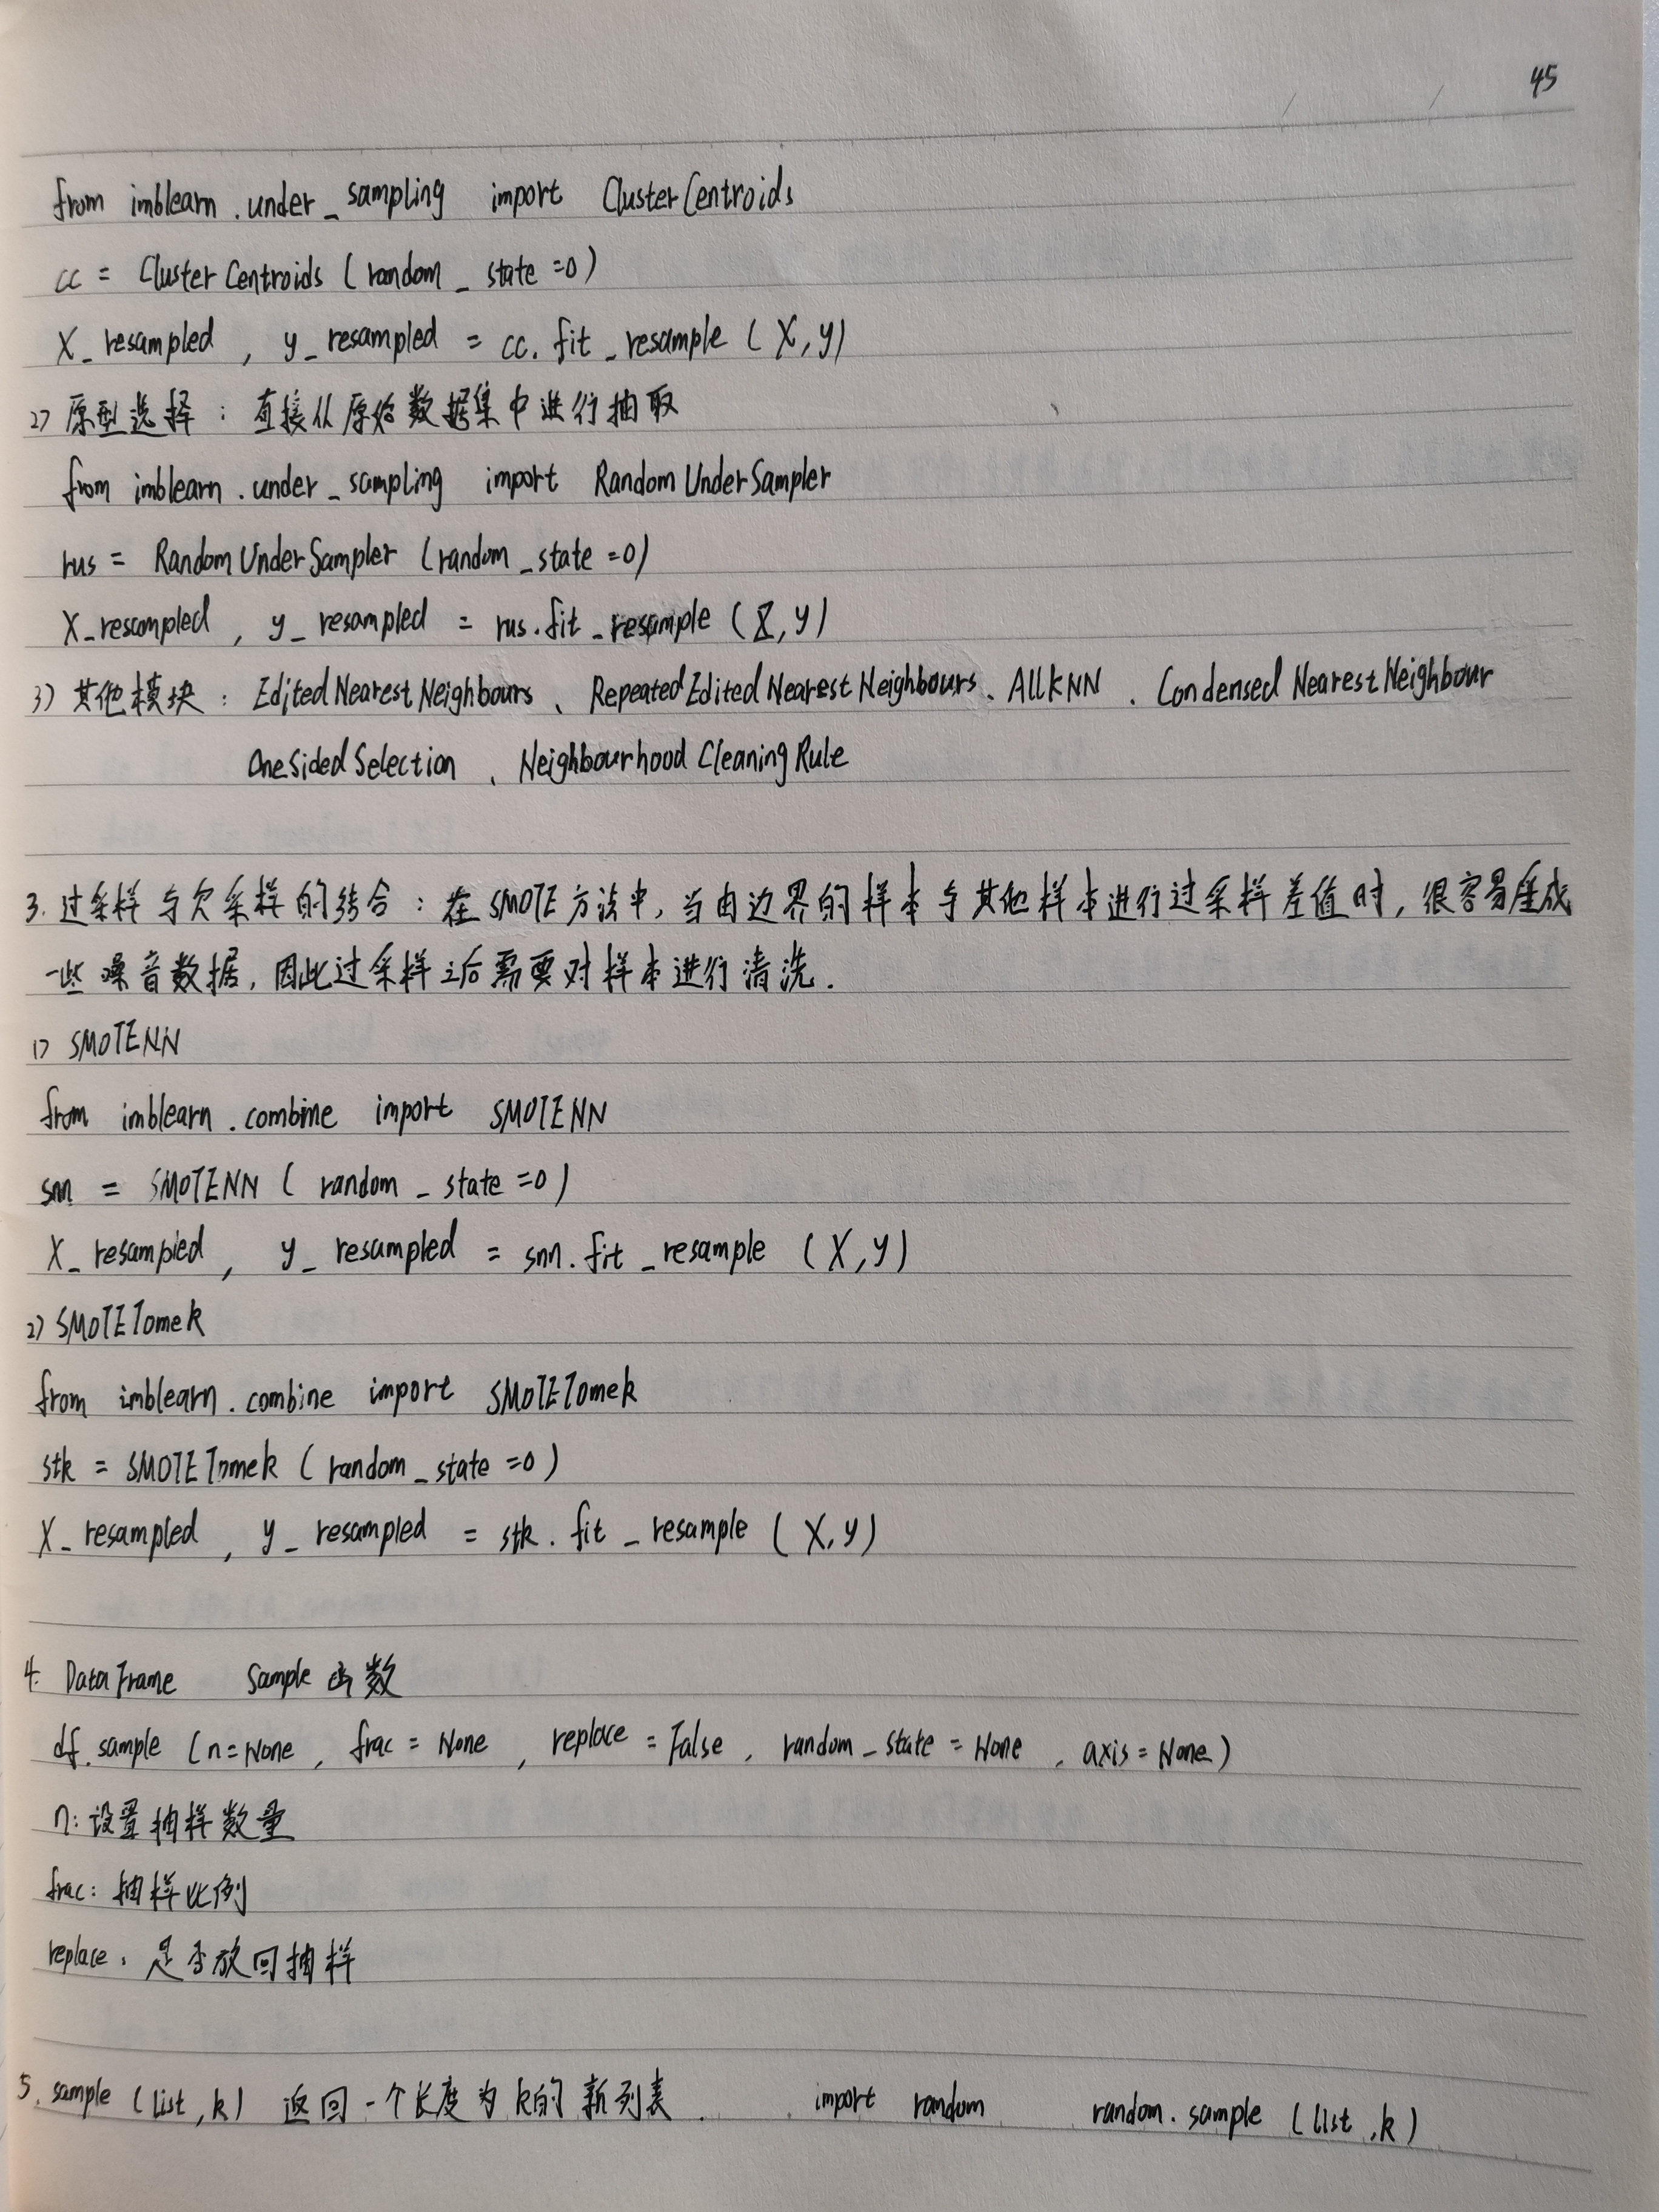 45
from imblearn.under_sampling import ClusterCentroids
cc = ClusterCentroids (random_state=0)
X_resampled , y_resampled = cc.fit_resample (X,y)
2) 原型选择：直接从原始数据集中进行抽取
from imblearn.under_sampling import RandomUnderSampler
rus = RandomUnderSampler (random_state=0)
X_resampled , y_resampled = rus.fit_resample (X,y)
3) 其他模块：EditedNearestNeighbours、RepeatedEditedNearestNeighbours、AllKNN、CondensedNearestNeighbour
OneSidedSelection、NeighbourhoodCleaningRule
3. 过采样与欠采样的结合：在SMOTE方法中，当由边界的样本与其他样本进行过采样差值时，很容易生成
一些噪音数据，因此过采样之后需要对样本进行清洗.
1) SMOTENN
from imblearn.combine import SMOTENN
snn = SMOTENN (random_state=0)
X_resampled , y_resampled = snn.fit_resample (X,y)
2) SMOTETomek
from imblearn.combine import SMOTETomek
stk = SMOTETomek (random_state=0)
X_resampled , y_resampled = stk.fit_resample (X,y)
4. DataFrame Sample函数
df.sample (n=None , frac=None , replace=False , random_state=None , axis=None)
n：设置抽样数量
frac：抽样比例
replace：是否放回抽样
5. sample (list,k) 返回一个长度为k的新列表. import random random.sample (list,k)